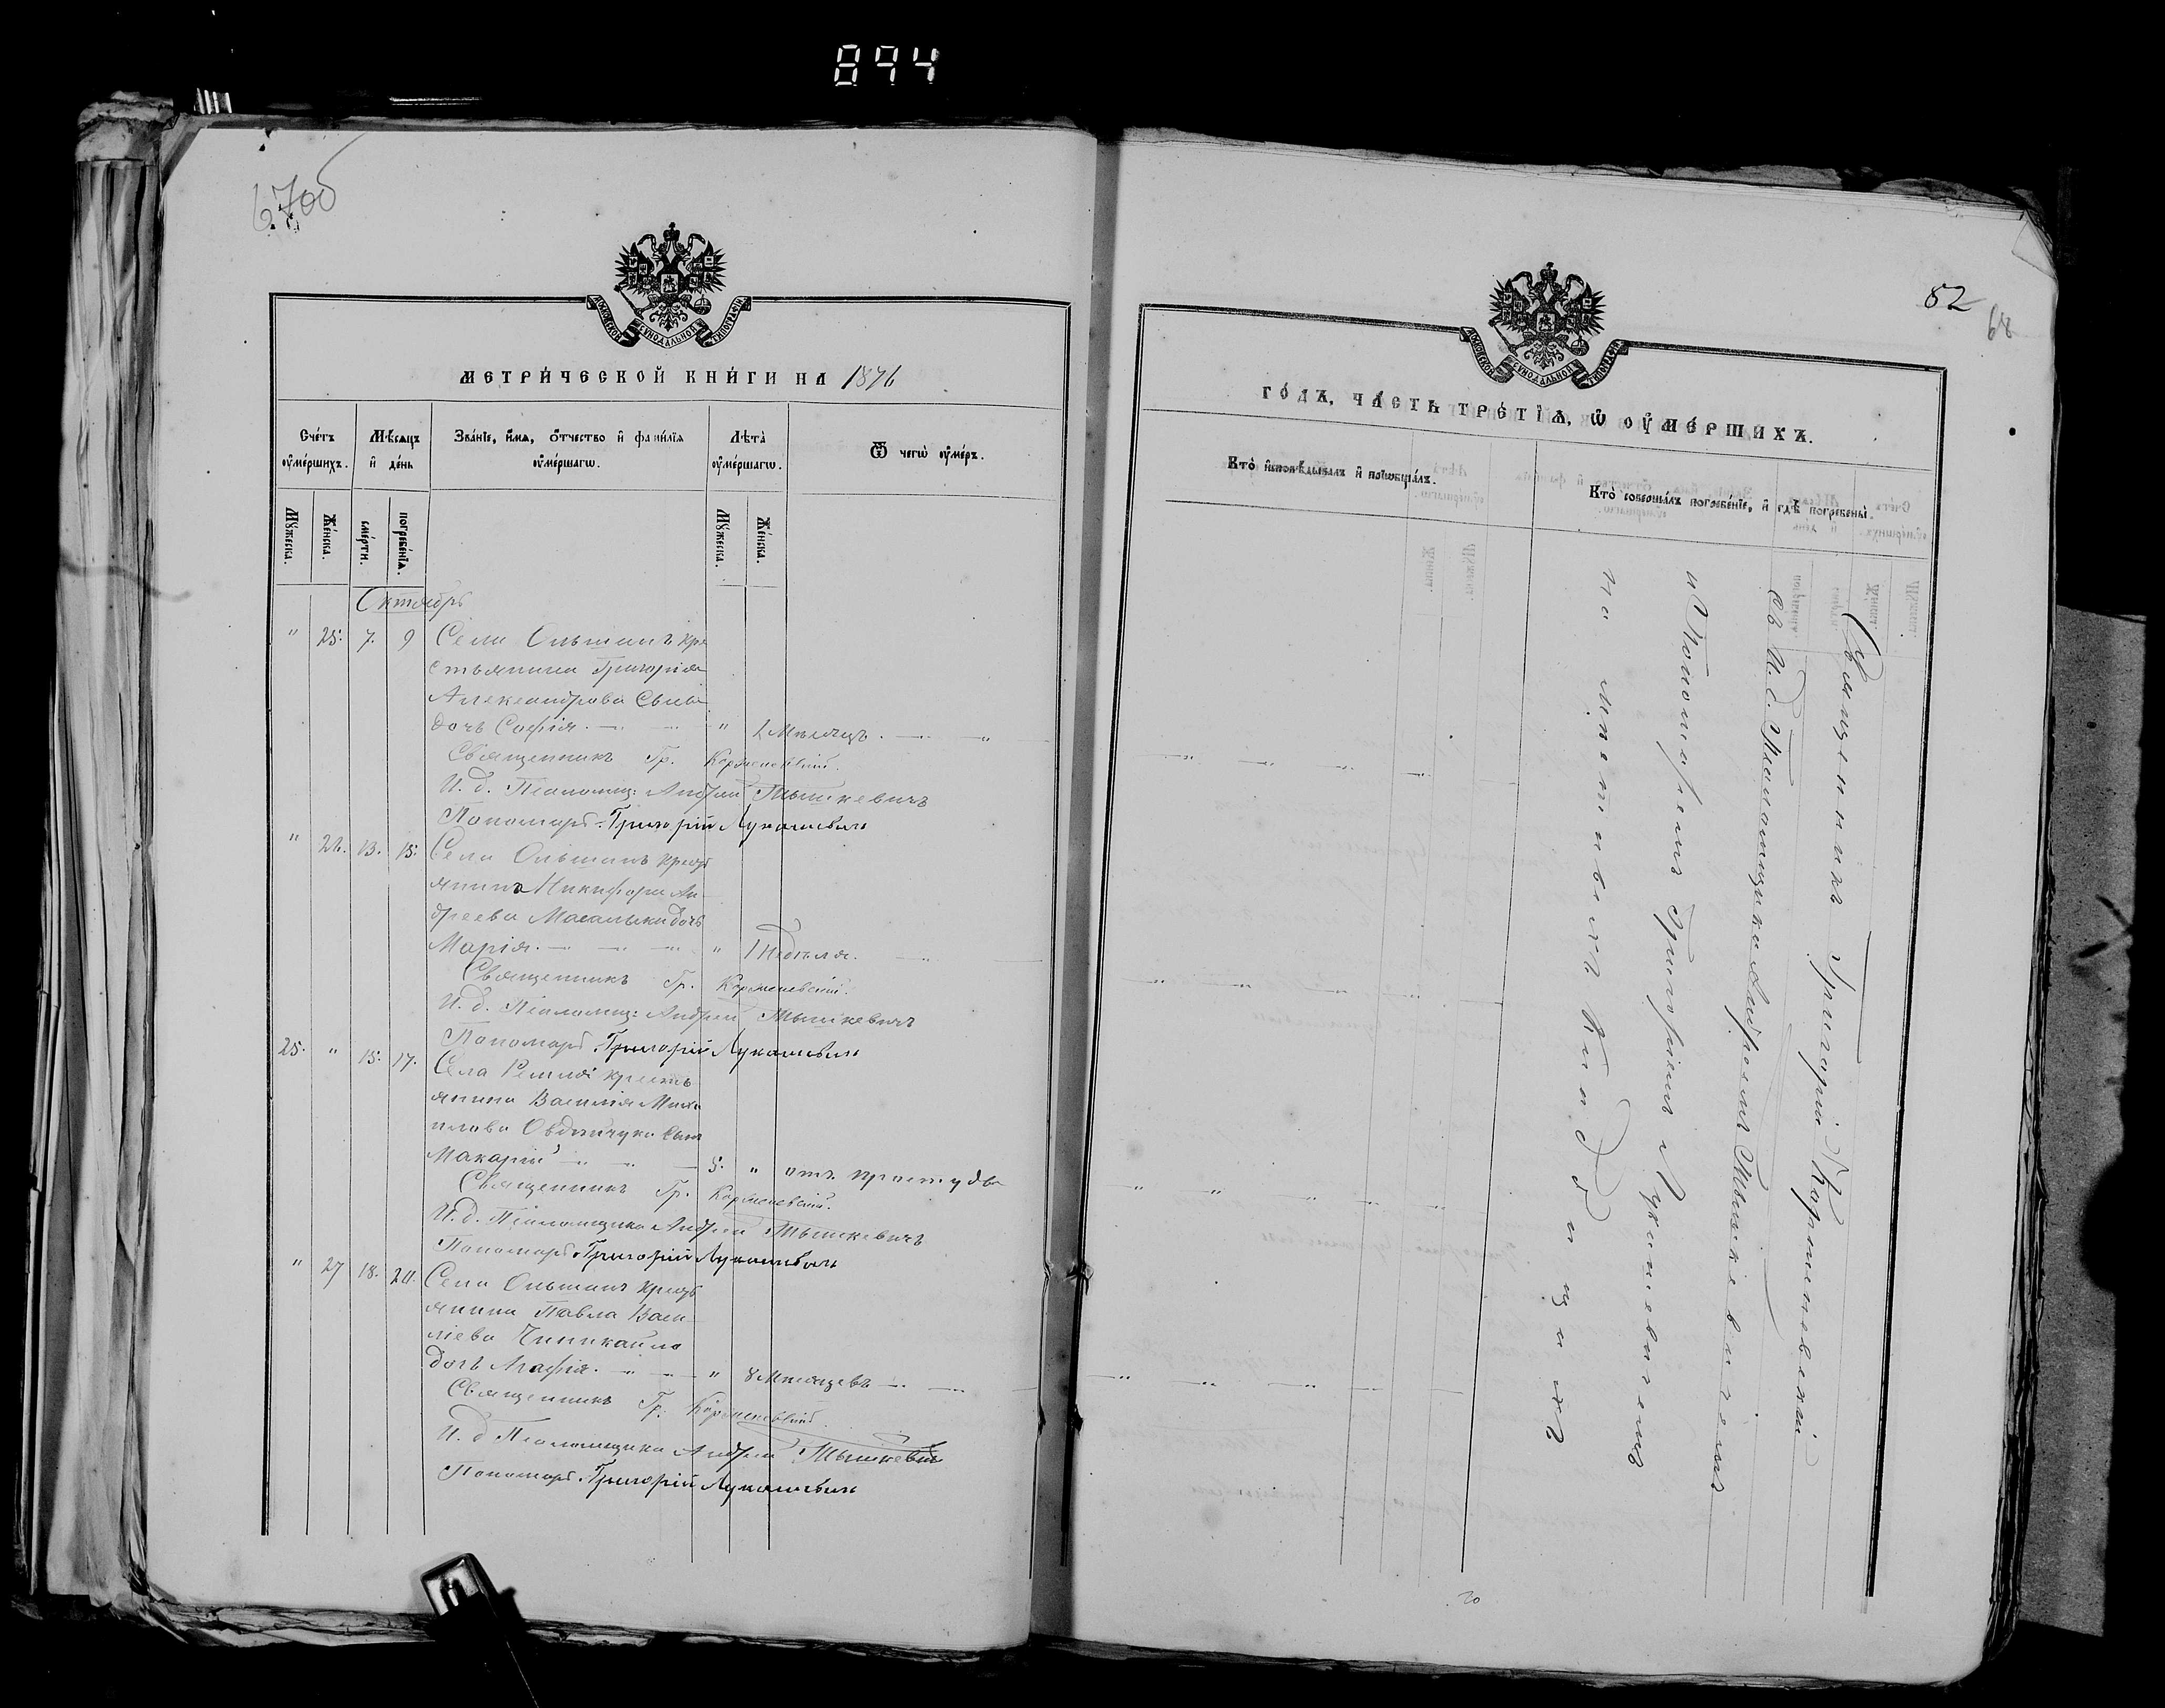 894
67об
МОСКОВСКОЙ СѴНОДАЛЬНОЙ ТИПОГРАФІИ
МЕТРИ́ЧЕСКОЙ КНИ́ГИ НА 1876
Сче́тъ ᲂу҆ме́ршихъ.
Мѣ́сѧцъ и҆ де́нь
Зва́нїе, и҆́мѧ, ѻ҆́тчество и҆ фами́лїѧ ᲂу҆ме́ршагѡ.
Лѣ́та ᲂу҆ме́ршагѡ.
Ѿ чегѡ̀ ᲂу҆́меръ.
Мꙋ́жеска.
Же́нска.
сме́рти.
погребе́нїѧ.
Мꙋ́жеска.
Же́нска.
Октябрь
" 25. 7. 9 Села Ольшанъ кре
стьянина Григорія
Александрова
дочь Софія. " 1 Мѣсяцъ. "
Священникъ Гр. Корженевскій.
И. д. Псаломщ: Андрей Мышкевичъ
Пономарь Григорій Лукашевичъ
" 26. 13. 15. Села Ольшанъ крест
янина Никифора Ан
дреева дочь
Марія. " 1 Недѣля.
Священникъ Гр. Корженевскій.
И. д. Псаломщ: Андрей Мышкевичъ
Пономарь Григорій Лукашевичъ
25. " 15. 17. Села кресть
янина Василія Миха
илова Овдѣйчука сынъ
Макарій 5. " отъ простуды
Священникъ Гр. Корженевскій.
И. д. Псаломщика Андрей Мышкевичъ
Пономарь Григорій Лукашевичъ
" 27 18. 20. Села Ольшанъ крест
янина Павла Васи
ліева
дочь " 8 Мѣсяцевъ
Священникъ Гр. Корженевскій
И. д. Псаломщика Андрей Мышкевичъ
Пономарь Григорій Лукашевичъ
82
68
МОСКОВСКОЙ СѴНОДАЛЬНОЙ ТИПОГРАФІИ
ГО́ДЪ, ЧА́СТЬ ТРЕ́ТЇѦ, Ѡ҆ ОУ҆МЕ́РШИХЪ.
Кто̀ и҆сповѣ́дывалъ и҆ прїѡбща́лъ.
Кто̀ соверша́лъ погребе́нїе, и҆ гдѣ̀ погребены̀.
Священникъ Григорій Корженевскій
съ И. д. Псаломщика Андреемъ Мышкевичемъ
и Пономаремъ Григоріемъ Лукашевичемъ
на мѣстныхъ кладбищахъ